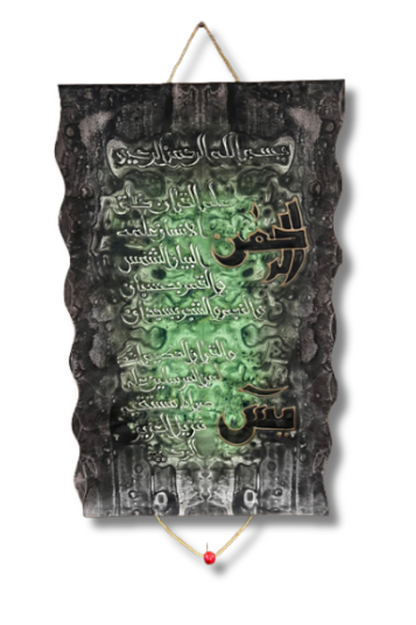 بسم الله الرحمن الرحيم
الرحمن
علم القران خلق
الانسان علمه
البيان الشمس
و القمر بحسبان
و النجم و الشجر يسجدان
يس
والقران الحكيم انك
لمن المرسلين على
صراط مستقيم
تنزيل العزيز
الرحيم